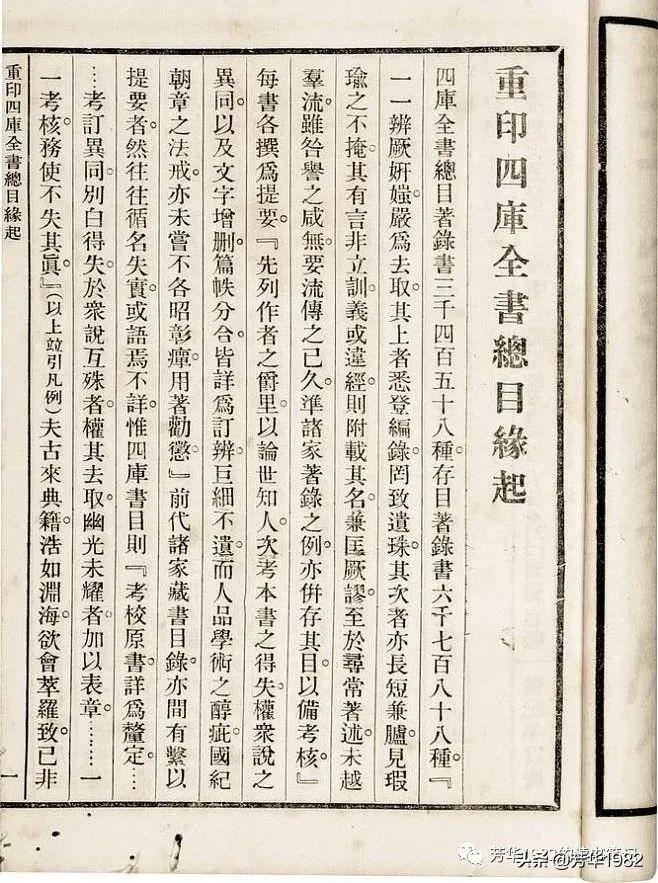 重印四庫全書總目緣起
四庫全書總目著錄書三千四百五十八種。存目著錄書六千七百八十八種。『
一一辨厥妍媸。嚴爲去取。其上者悉登編錄。罔致遺珠。其次者亦長短兼臚。見瑕
瑜之不掩。其有言非立訓。義或違經。則附載其名。兼匡厥謬。至於尋常著述。未越
羣流。雖咎譽之咸無。要流傳之已久。準諸家著錄之例。亦倂存其目。以備考核。』
每書各撰爲提要。『先列作者之爵里。以論世知人。次考本書之得失。權衆說之
異同。以及文字增删。篇帙分合。皆詳爲訂辨。巨細不遺。而人品學術之醇疵。國紀
朝章之法戒。亦未嘗不各昭彰癉。用著勸懲。』前代諸家藏書目錄。亦間有繫以
提要者。然往往循名失實。或語焉不詳。惟四庫書目則『考校原書。詳爲釐定。…
…考訂異同。別白得失。於衆說互殊者。權其去取。幽光未耀者。加以表章。………一
一考核。務使不失其眞。』(以上竝引凡例)夫古來典籍。浩如淵海。欲會萃羅致。已非
重印四庫全書總目緣起
一
头条 @芳华1982